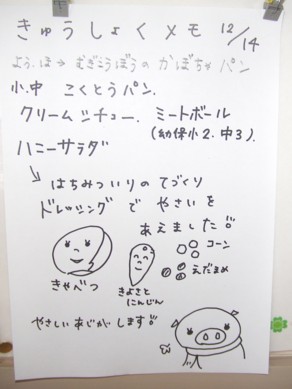 きゅうしょくメモ 12/14
よう.ほ→むぎこうぼうのかぼちゃパン
小.中 こくとうパン.
クリームシチュー. ミートボール
(幼保小2.中3).
ハニーサラダ
↳ はちみついりのてづくり
ドレッシングでやさいを
あえました!!
コーン
えだまめ
きゃべつ
きよさと
にんじん
やさしいあじがします!!